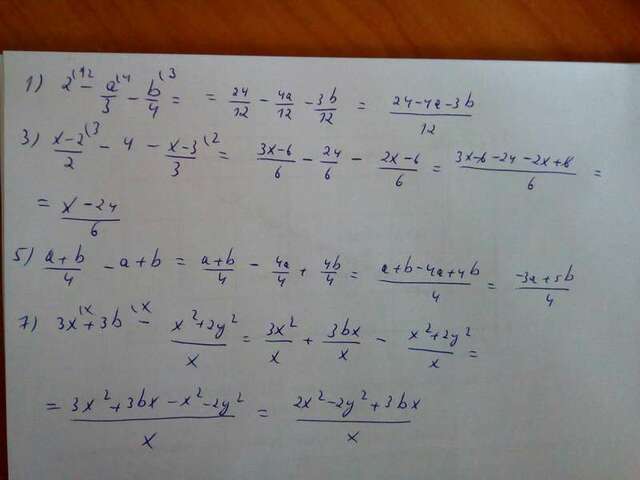 1) 2⁽¹² - a⁽⁴/3 - b⁽³/4 = = 24/12 - 4a/12 - 3b/12 = (24-4a-3b)/12
3) (x-2)⁽³/2 - 4 - (x-3)⁽²/3 = (3x-6)/6 - 24/6 - (2x-6)/6 = (3x-6-24-2x+6)/6 =
= (x-24)/6
5) (a+b)/4 - a+b = (a+b)/4 - 4a/4 + 4b/4 = (a+b-4a+4b)/4 = (-3a+5b)/4
7) 3x⁽ˣ + 3b⁽ˣ - (x²+2y²)/x = 3x²/x + 3bx/x - (x²+2y²)/x =
= (3x²+3bx-x²-2y²)/x = (2x²-2y²+3bx)/x